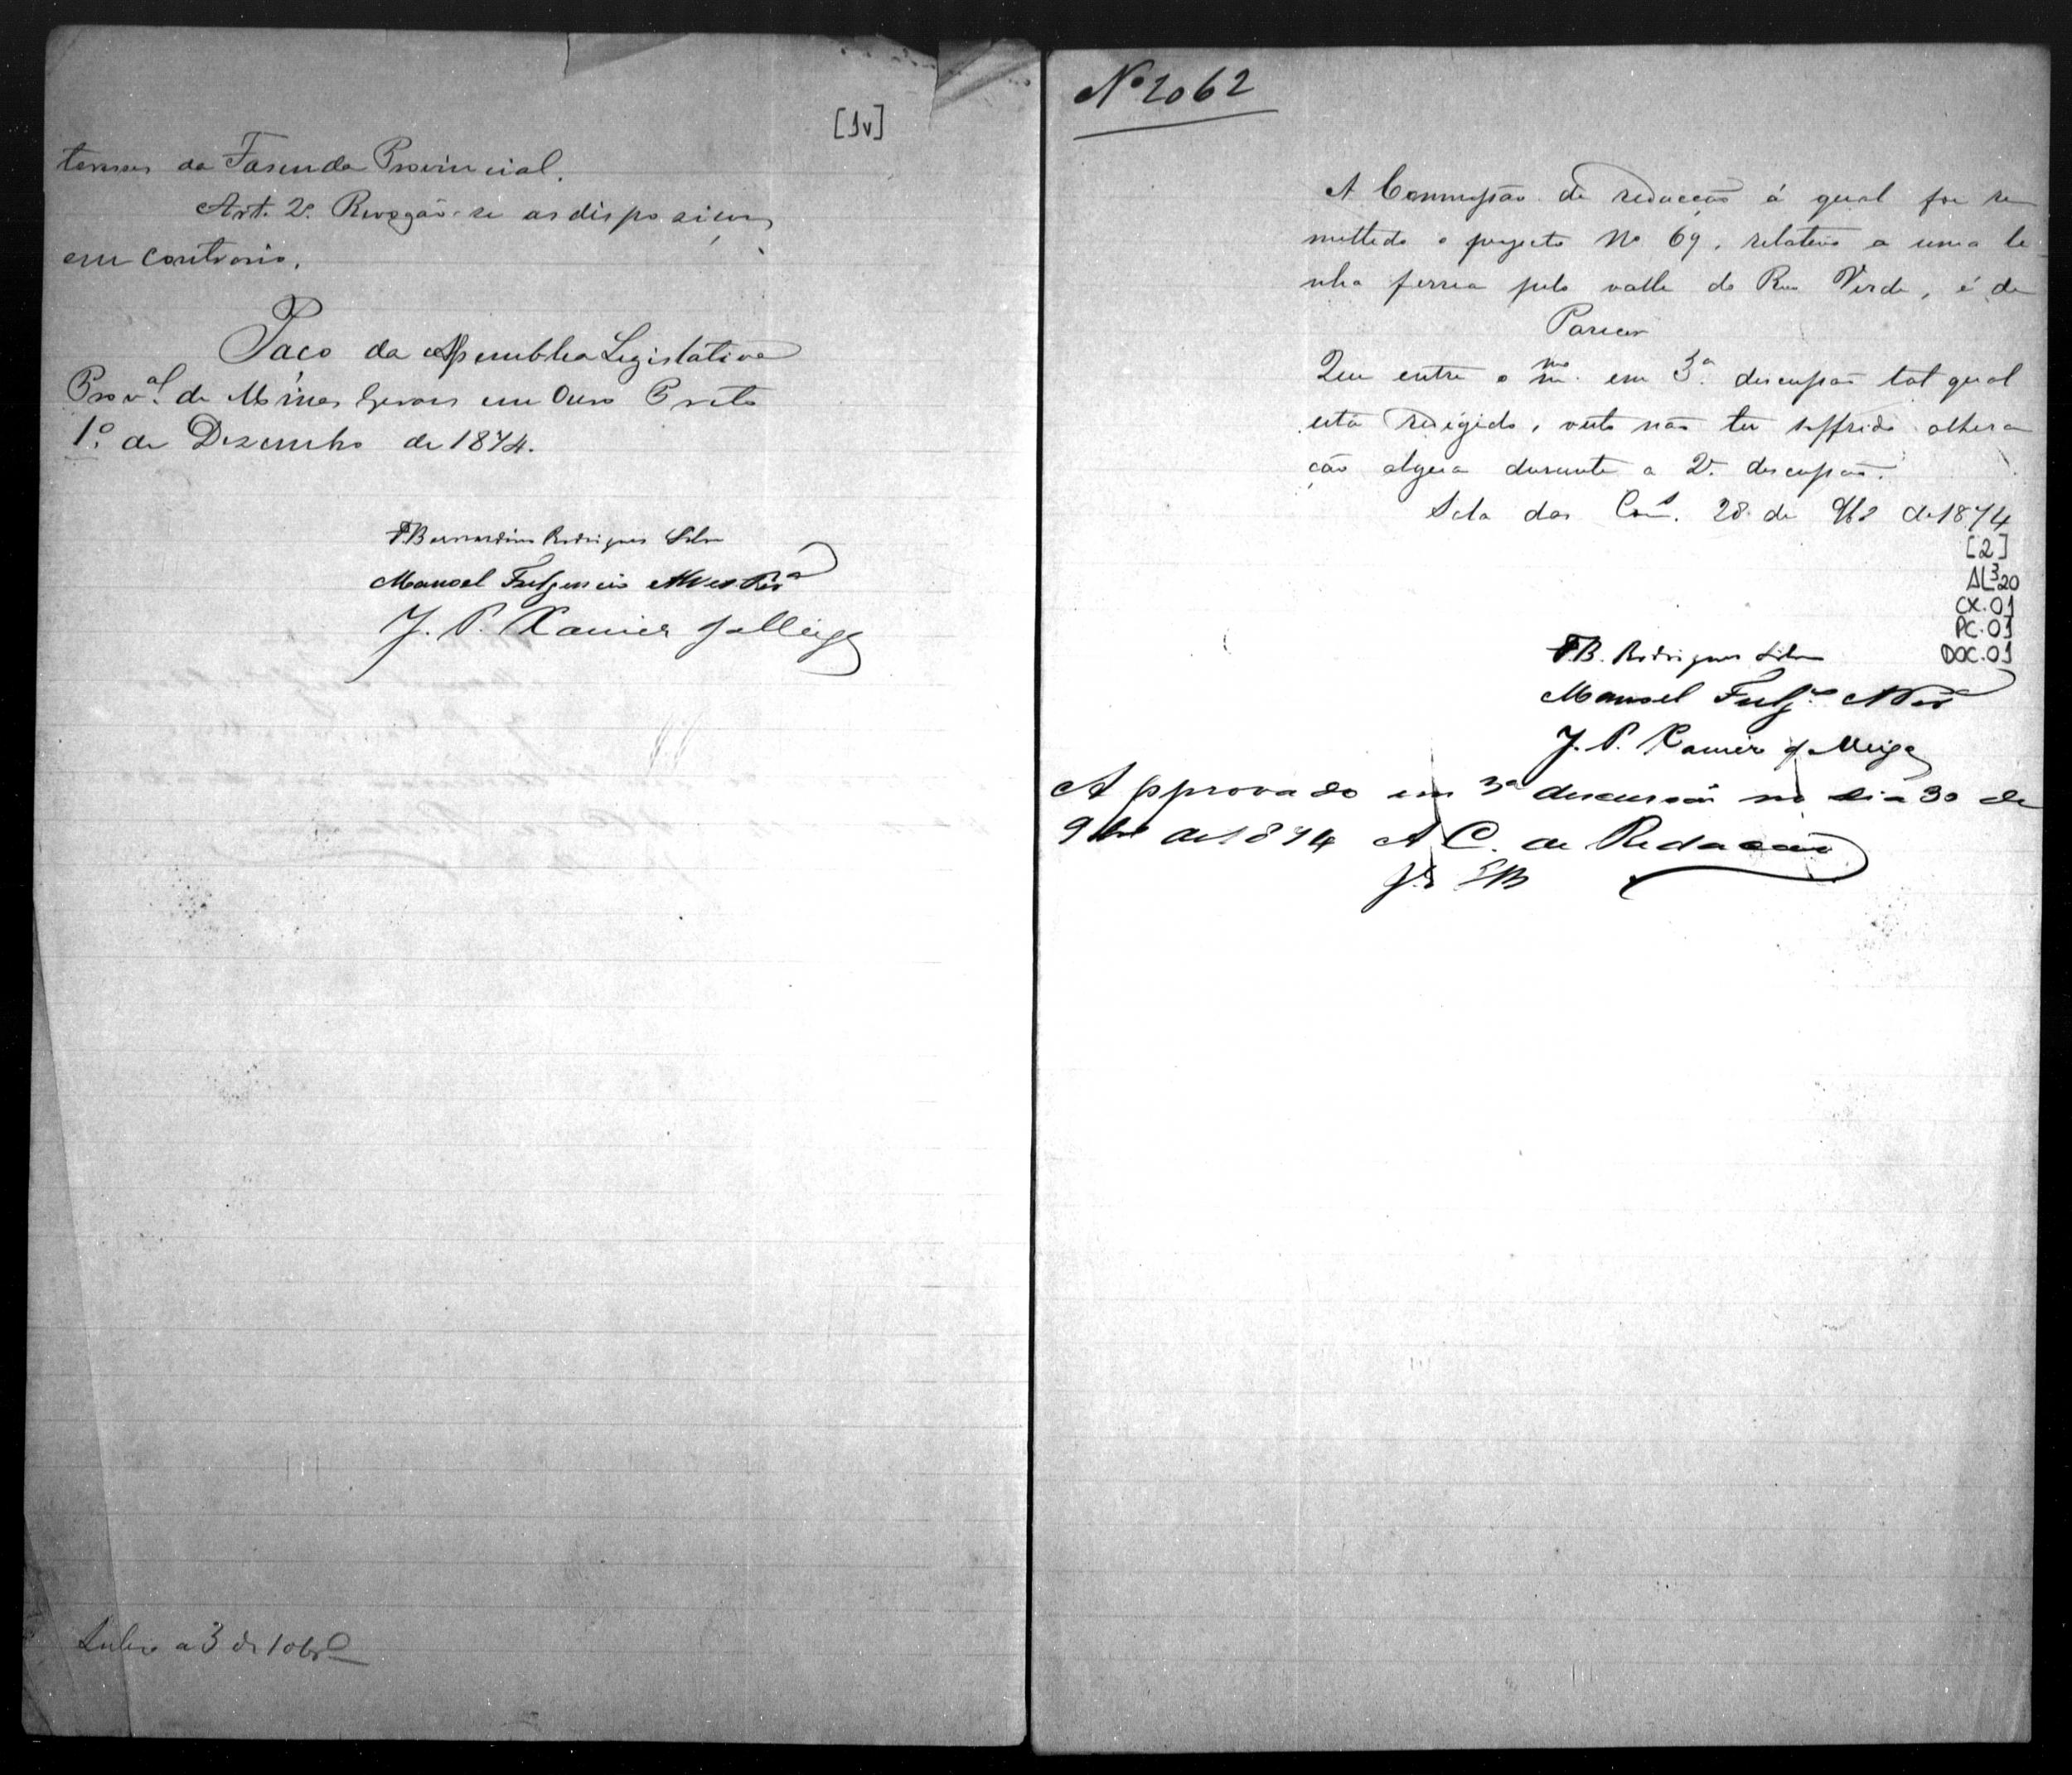 [1v]
teresses da Fasenda Provincial.
Art. 2º. Revogão-se as disposições
em contrario.
Paço da Assemblea Legislativa
Prov.al de Minas Geraes em Ouro Preto
1º. de Dezembro de 1874.
F. Bernardino Rodrigues Silva
Manoel Fulgencio Alves Per.a
J. P. Xavier da Veiga
Subio a 3 de 10br.o
Nº 2062
A Commissão de redacção á qual foi re
mettido o projecto Nº 69, relativo a uma li
nha ferrea pelo valle do Rio Verde, é de
Parecer
Que entre o m.mo em 3ª. discussão tal qual
está redigido, visto não ter soffrido altera
ção algua durante a 2ª. discussão.
Sala das Com.s 28 de 9br.o de 1874
[2]
AL³20
CX.01
PC.01
DOC.01
F.B. Rodrigues Silva
Manoel Fulg.cio A Per.a
J. P. Xavier da Veiga
Approvado em 3ª discussão no dia 30 de
9br.o de 1874 A C. de Redacção